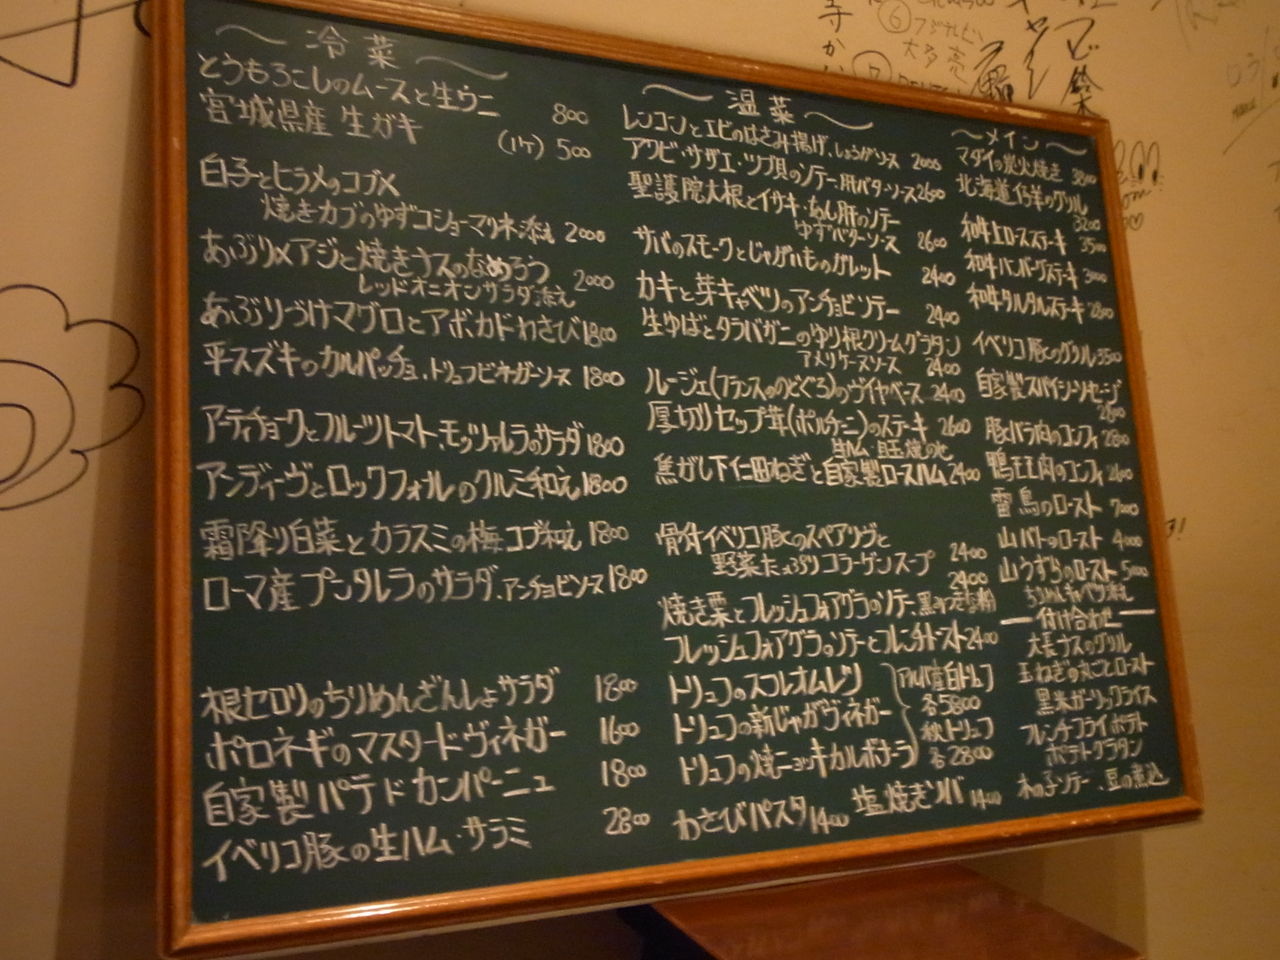 〜冷菜〜
とうもろこしのムースと生ウニ 800
宮城県産 生ガキ (1ケ) 500
白子とヒラメのコブ〆
焼きカブのゆずコショーマリネ添え 2000
あぶり〆アジと焼きナスのなめろう
レッドオニオンサラダ添え 2000
あぶりづけマグロとアボカドわさび 1800
平スズキのカルパッチョ.トリュフビネガーソース 1800
アーティチョークとフルーツトマト、モッツァレラのサラダ 1800
アンディーヴとロックフォールのクルミ和え 1800
霜降り白菜とカラスミの梅コブ和え 1800
ローマ産プンタレラのサラダ.アンチョビソース 1800
根セロリのちりめんざんしょサラダ 1800
ポロネギのマスタードヴィネガー 1600
自家製パテドカンパーニュ 1800
イベリコ豚の生ハム・サラミ 2800
〜温菜〜
レンコンとエビのはさみ揚げ.しょうがソース 2000
アワビ・サザエ・ツブ貝のソテー.肝バターソース 2600
聖護院大根とイサキ・あん肝のソテー
ゆずバターソース 2600
サバのスモークとじゃがいものガレット 2400
カキと芽キャベツのアンチョビソテー 2400
生ゆばとタラバガニのゆり根クリームグラタン
アメリケーヌソース 2400
ルージェ(フランスののどぐろ)のヴイヤベース 2400
厚切りセップ茸(ポルチーニ)のステーキ 2600
焦がし下仁田ねぎと自家製ロースハム 2400
骨付イベリコ豚のスペアリブと
野菜たっぷりコラーゲンスープ 2400
2400
焼き栗とフレッシュフォアグラのソテー.黒みつきな粉
フレッシュフォアグラのソテーとフレンチトースト 2400
トリュフのスフレオムレツ
トリュフの新じゃがヴィネガー
トリュフの焼ニョッキカルボナーラ
アルバ産白トリュフ
各5800
秋トリュフ
各2800
わさびパスタ 1400 塩焼きソバ 1400
〜メイン〜
マダイの炭火焼き 3200
北海道仔羊のグリル
3200
和牛ロースステーキ 3500
和牛ハンバーグステーキ 3000
和牛タルタルステーキ 2800
イベリコ豚のグリル 3500
自家製スパイシーソセージ
2800
豚バラ肉のコンフィ 2800
鴨モモ肉のコンフィ 2800
雷鳥のロースト 7000
山バトのロースト 4000
山うずらのロースト 5000
ちりめんキャベツ添え
ー付け合わせー
大長ナスのグリル
玉ねぎの丸ごとロースト
黒米ガーリックライス
フレンチフライポテト
ポテトグラタン
木の子ソテー.豆の煮込